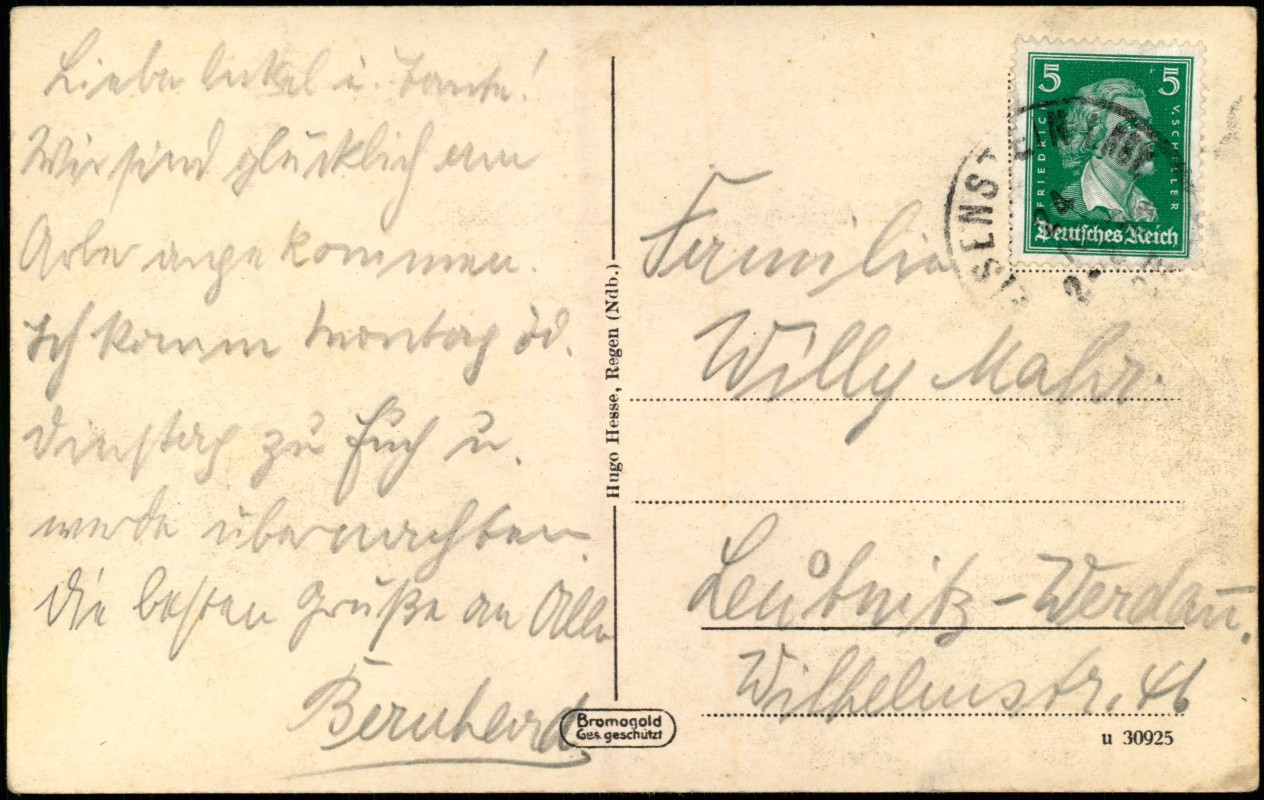 Liebe Onkel u. Tante!
Wir sind glücklich am
Arber angekommen.
Ich komm Montag od.
Dienstag zu Euch u.
werde übernachten.
Die besten Grüße an Alle
Bernhard
Hugo Hesse, Regen (Ndb.)
Bromogold
Ges. geschützt
5 5
FRIEDRICH V. SCHILLER
Deutsches Reich
Familie
Willy Mahr.
Leubnitz-Werdau.
Wilhelmstr. 46
u 30925